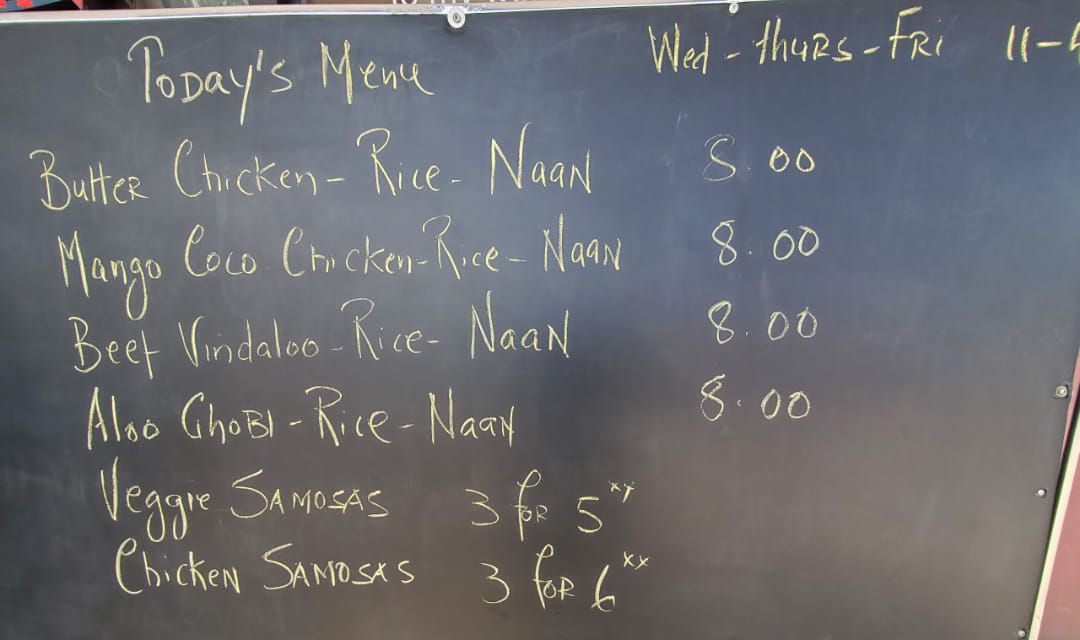 Today's Menu Wed - Thurs - Fri 11 -
Butter Chicken - Rice - Naan 8.00
Mango Coco Chicken - Rice - Naan 8.00
Beef Vindaloo - Rice - Naan 8.00
Aloo Ghobi - Rice - Naan 8.00
Veggie Samosas 3 for 5 xx
Chicken Samosas 3 for 6 xx